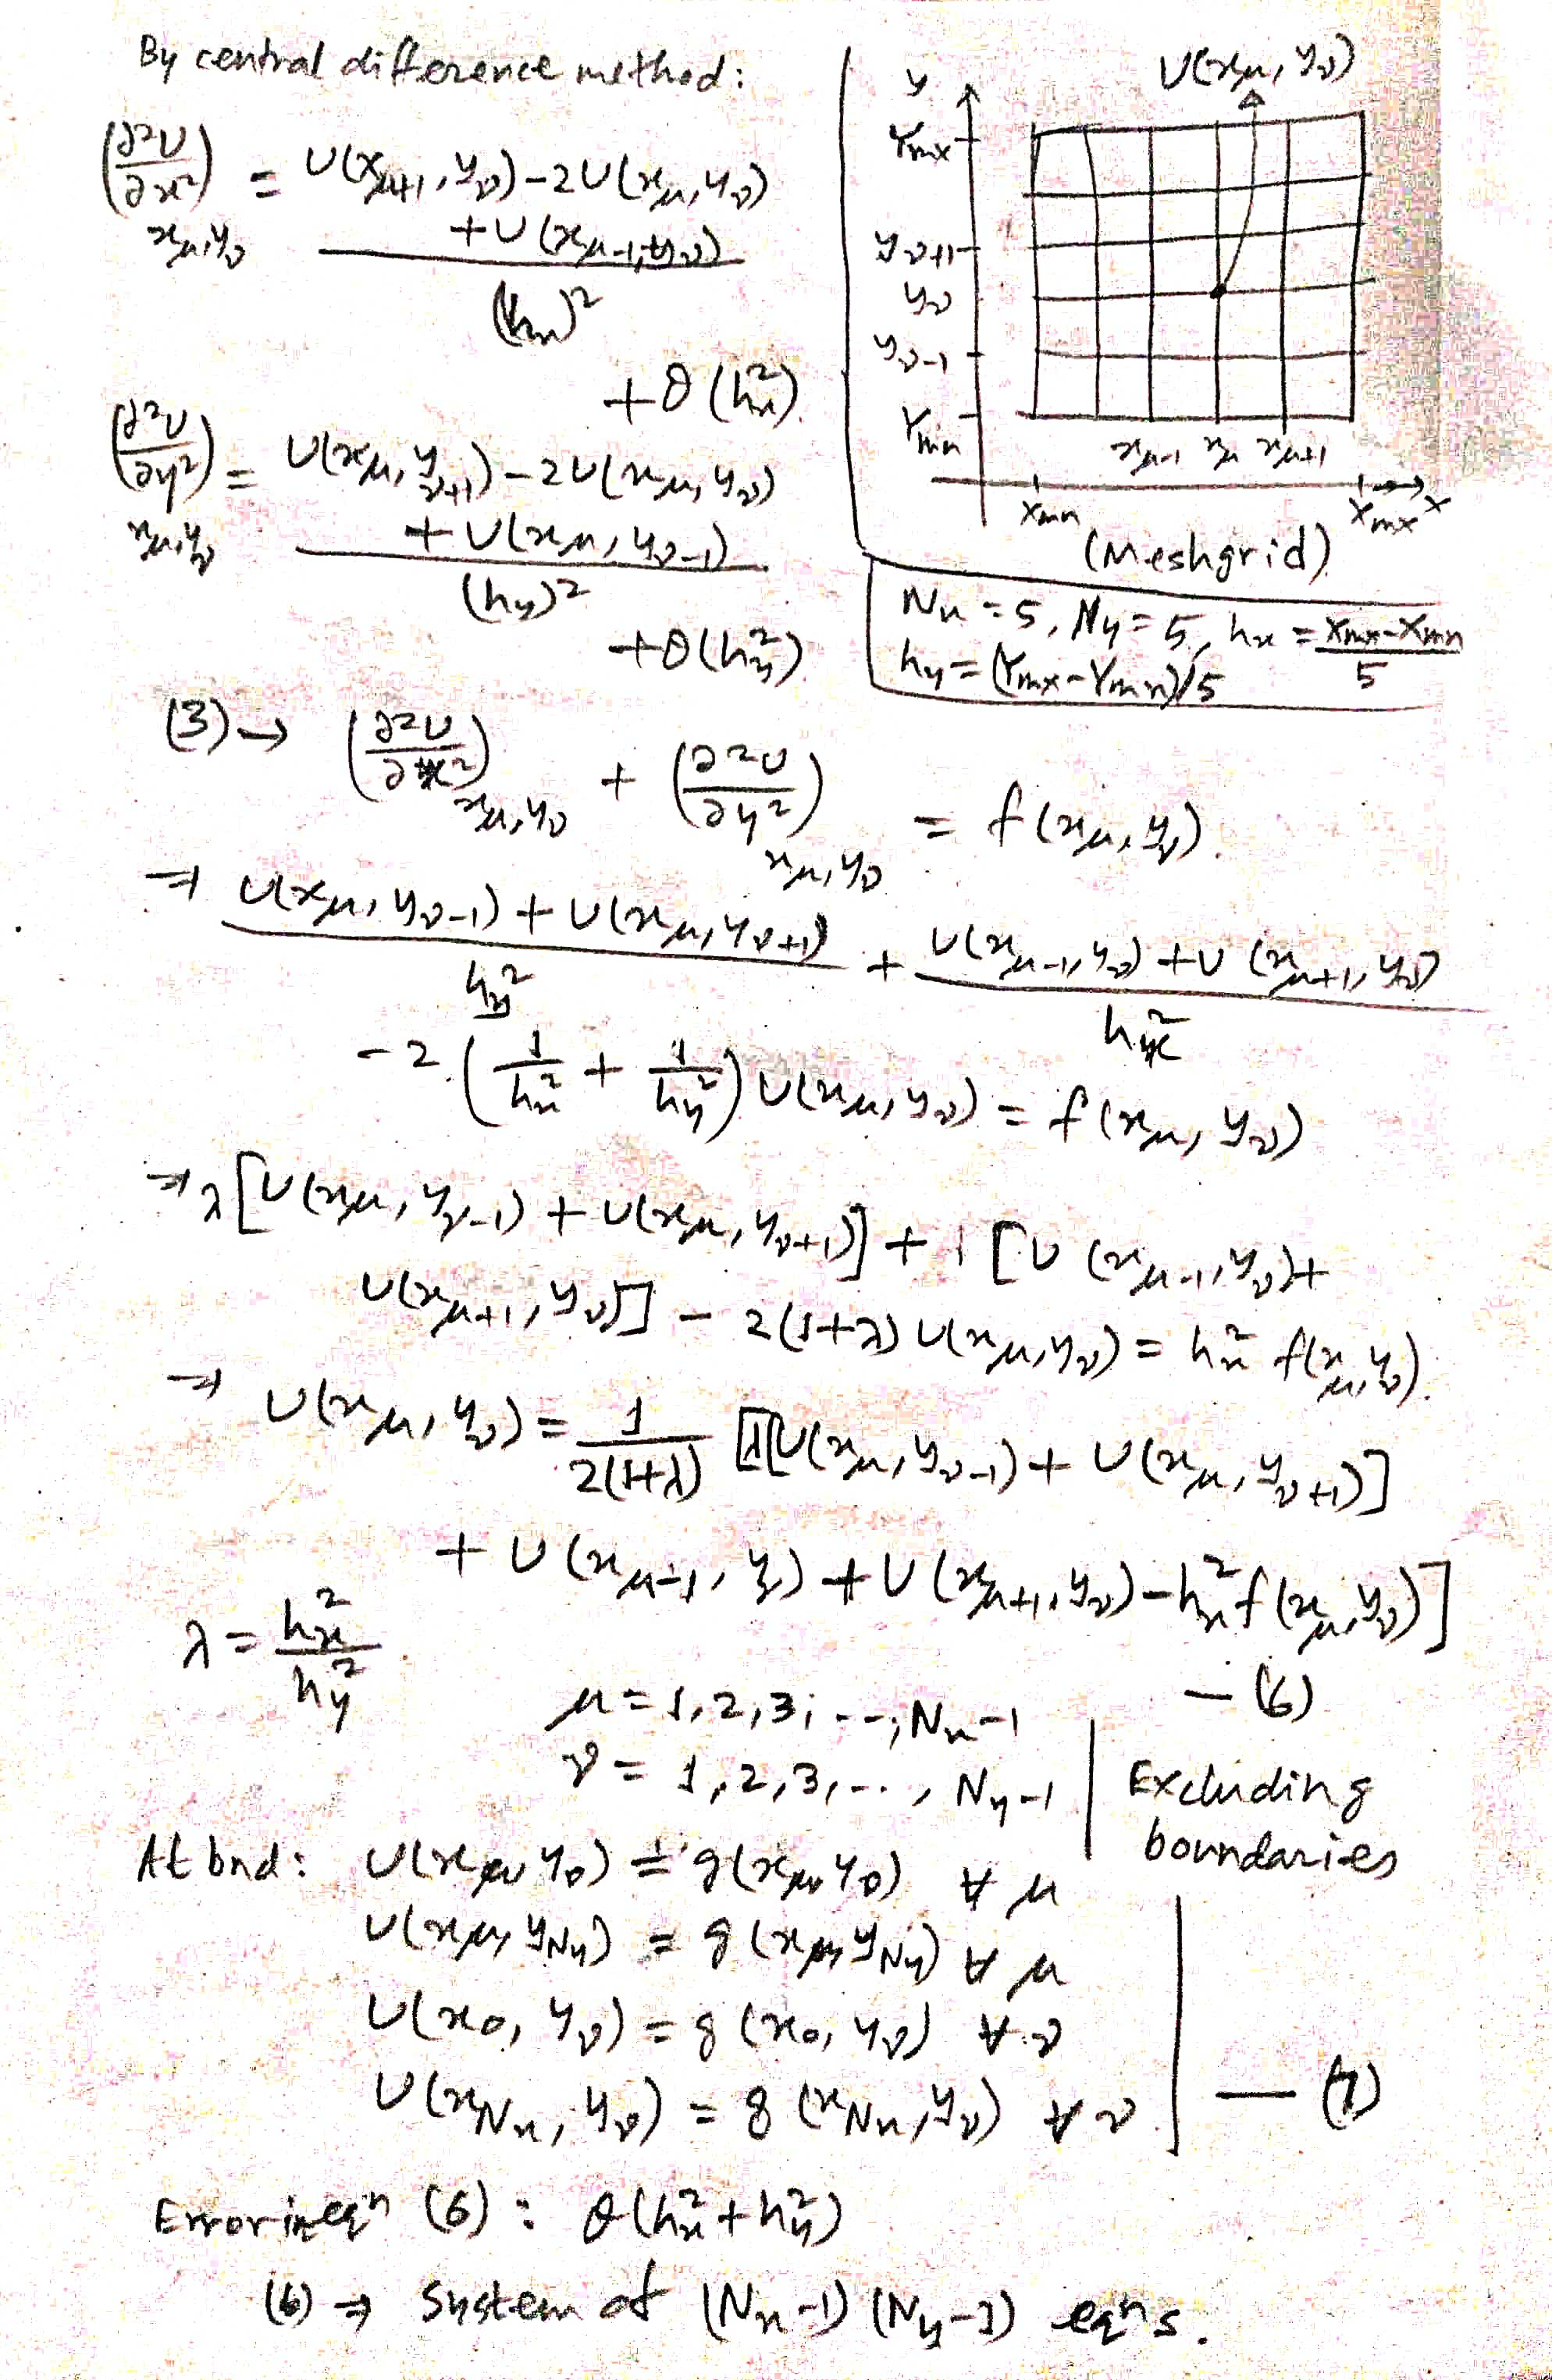 By central difference method:
(∂²U/∂x²)_{xμ,yν} = U(x_{μ+1}, y_ν) - 2U(x_μ, y_ν)
+ U(x_{μ-1}, y_ν)
(h_x)²
+ O(h_x²)
(∂²U/∂y²)_{xμ,yν} = U(x_μ, y_{ν+1}) - 2U(x_μ, y_ν)
+ U(x_μ, y_{ν-1})
(h_y)²
+ O(h_y²)
U(x_μ, y_ν)
y
Y_mx
y_{ν+1}
y_ν
y_{ν-1}
Y_mn
x_{μ-1} x_μ x_{μ+1}
X_mn X_mx x
(Meshgrid)
N_x = 5, N_y = 5, h_x = (X_mx - X_mn)/5
h_y = (Y_mx - Y_mn)/5
(3) → (∂²U/∂x²)_{xμ,yν} + (∂²U/∂y²)_{xμ,yν} = f(x_μ, y_ν).
⇒ (U(x_μ, y_{ν-1}) + U(x_μ, y_{ν+1}))/h_y² + (U(x_{μ-1}, y_ν) + U(x_{μ+1}, y_ν))/h_x²
- 2(1/h_x² + 1/h_y²) U(x_μ, y_ν) = f(x_μ, y_ν)
⇒ λ[U(x_μ, y_{ν-1}) + U(x_μ, y_{ν+1})] + 1[U(x_{μ-1}, y_ν) +
U(x_{μ+1}, y_ν)] - 2(1+λ) U(x_μ, y_ν) = h_x² f(x_μ, y_ν).
⇒ U(x_μ, y_ν) = 1/2(1+λ) [λ[U(x_μ, y_{ν-1}) + U(x_μ, y_{ν+1})]
+ U(x_{μ-1}, y_ν) + U(x_{μ+1}, y_ν) - h_x² f(x_μ, y_ν)]
— (6)
λ = h_x²/h_y²
μ = 1, 2, 3, ..., N_x-1
ν = 1, 2, 3, ..., N_y-1
Excluding
boundaries
At bnd: U(x_μ, y_0) = g(x_μ, y_0) ∀ μ
U(x_μ, y_{Ny}) = g(x_μ, y_{Ny}) ∀ μ
U(x_0, y_ν) = g(x_0, y_ν) ∀ ν
U(x_{Nx}, y_ν) = g(x_{Nx}, y_ν) ∀ ν
— (7)
Error in eqn (6): O(h_x² + h_y²)
(6) ⇒ System of (N_x-1)(N_y-1) eqns.